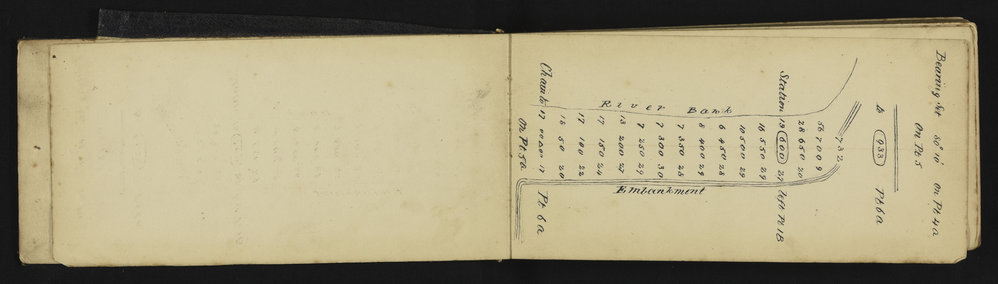 Bearing at 30° 10' on Pt 4a
On Pt 5
to 933 Pt 6a
732
56 700 9
28 650 20
Station 18 600 27 left Pt 1B
16 550 29
10 500 29
6 450 28
8 400 29
7 350 25
7 300 30
7 250 29
13 200 27
17 150 24
17 100 22
15 50 20
17 17 Pt 6a
On Pt 5a
River Bank
Embankment